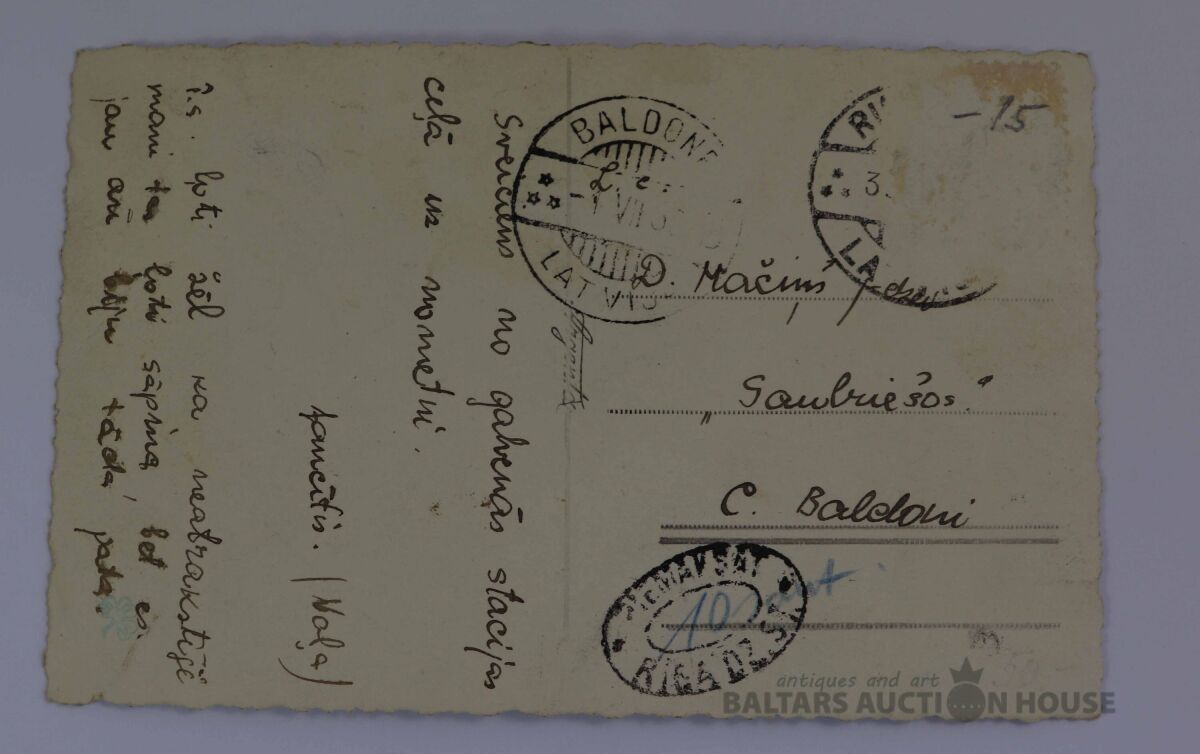 Sveiciens no galvenās stacijas
ceļā uz nometni.
Jancītis. (Vaļa)
P.s. ļoti žēl ka neatrakstīji
mani tas ļoti sāpina, bet es
jau arī biju tāda pata.
BALDONE
VII 3
LATVIJ
RI
3.
LA
-15
D. Mačiņš
"Gaubriešos"
C. Baldoni
PIEMAKSAT
10 sant.
RIGA DZ. ST.
antiques and art
BALTARS AUCTION HOUSE